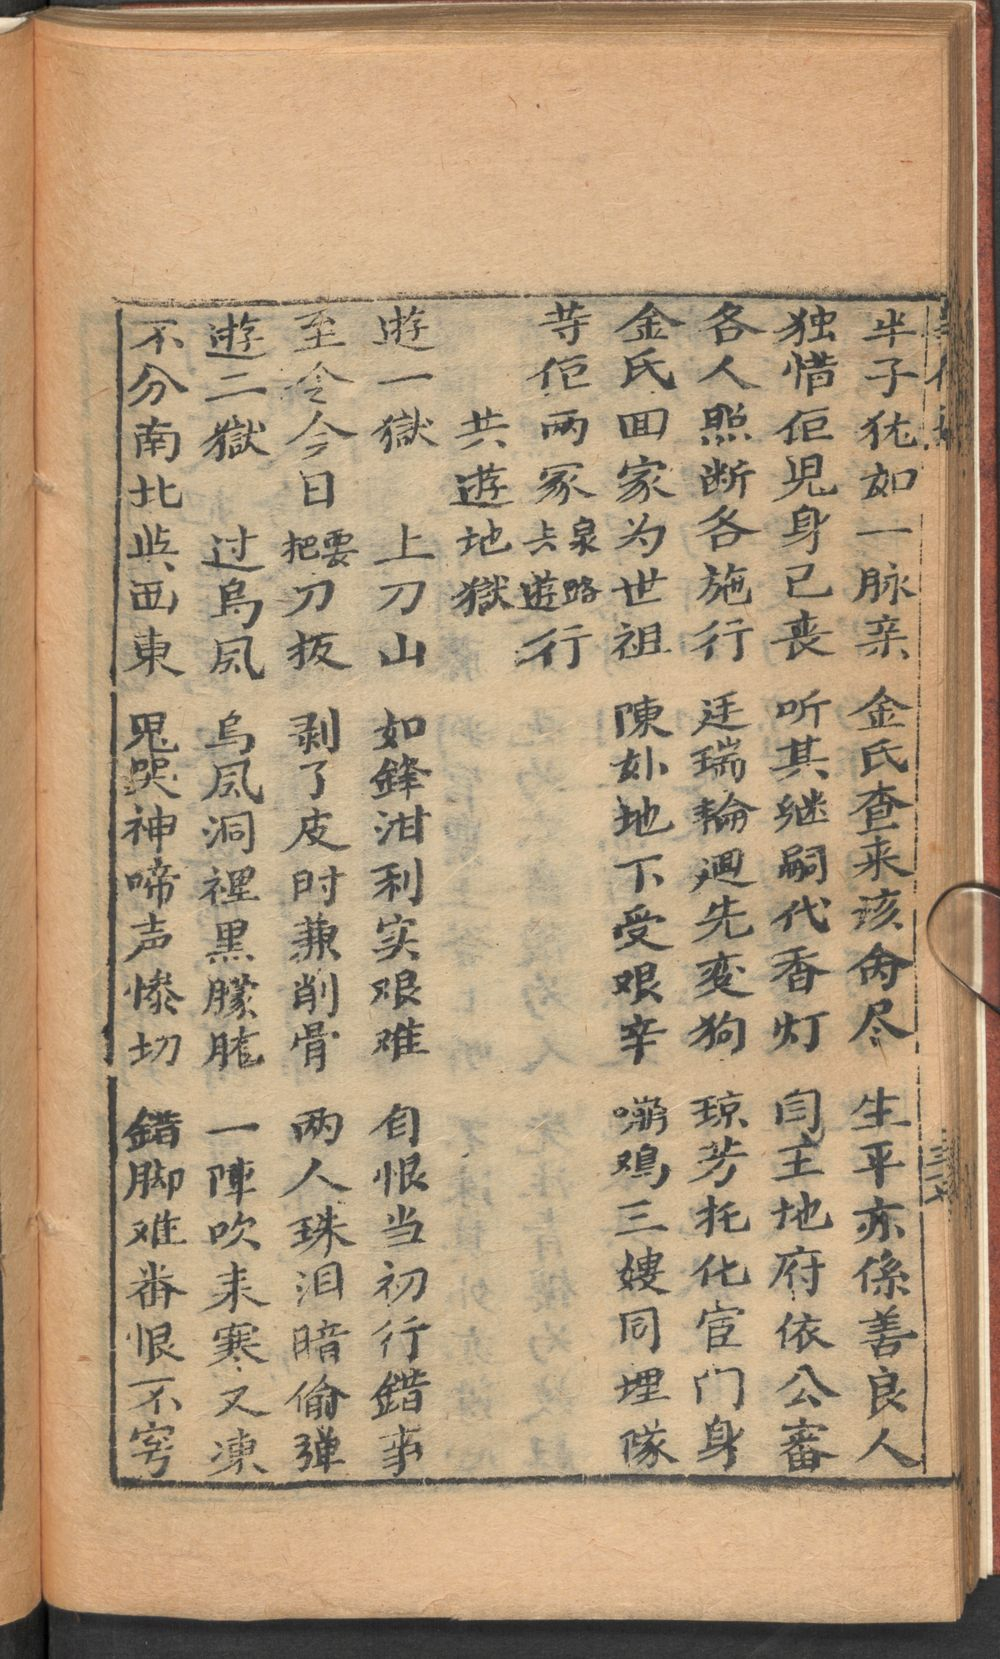 半子犹如一脉亲　金氏查来该禽尽　生平亦係善良人
独惜佢児身已丧　听其継嗣代香灯　闫王地府依公審
各人照断各施行　廷瑞輪廻先变狗　琼芳托化宦门身
金氏囬家为世祖　陳妙地下受艰辛　嘣鸡三嫂同埋隊
䒭佢両冢泉路共遊行
共遊地獄
遊一獄　上刀山　如鋒泔利实艰难　自恨当初行錯事
至令今日要把刀扳　剥了皮时兼削骨　两人珠泪暗偷弹
遊二獄　过烏凨　烏凨洞裡黒朦朧　一陣吹来寒又凍
不分南北与西東　鬼哭神啼声惨切　錯脚难番恨不穷
三十